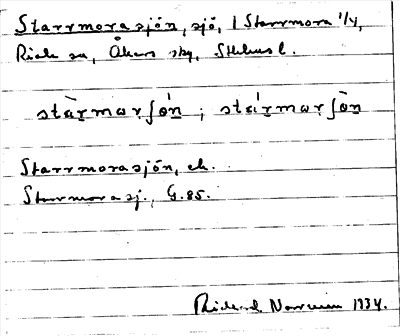 Starrmorasjön, sjö, i Starrmora 1/4,
sn, Åkers sky, Sthlms l.
stàr̥mwr̥ʃòn ; stár̥mwr̥ʃòn
Starrmorasjön, ek.
Starrmorasj., G. 85.
Rickard 1934.